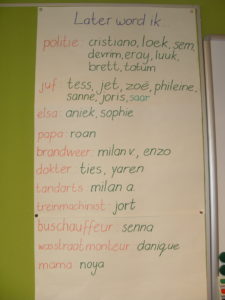 Later word ik...
politie: cristiano, loek, sem,
devrim, eray, luuk,
brett, tatum
juf: tess, jet, zoë, phileine,
sanne, joris, saar
elsa: aniek, sophie
papa: roan
brandweer: milan v., enzo
dokter: ties, yaren
tandarts: milan a.
treinmachinist: jort
buschauffeur: senna
wasstraatmonteur: danique
mama: noya